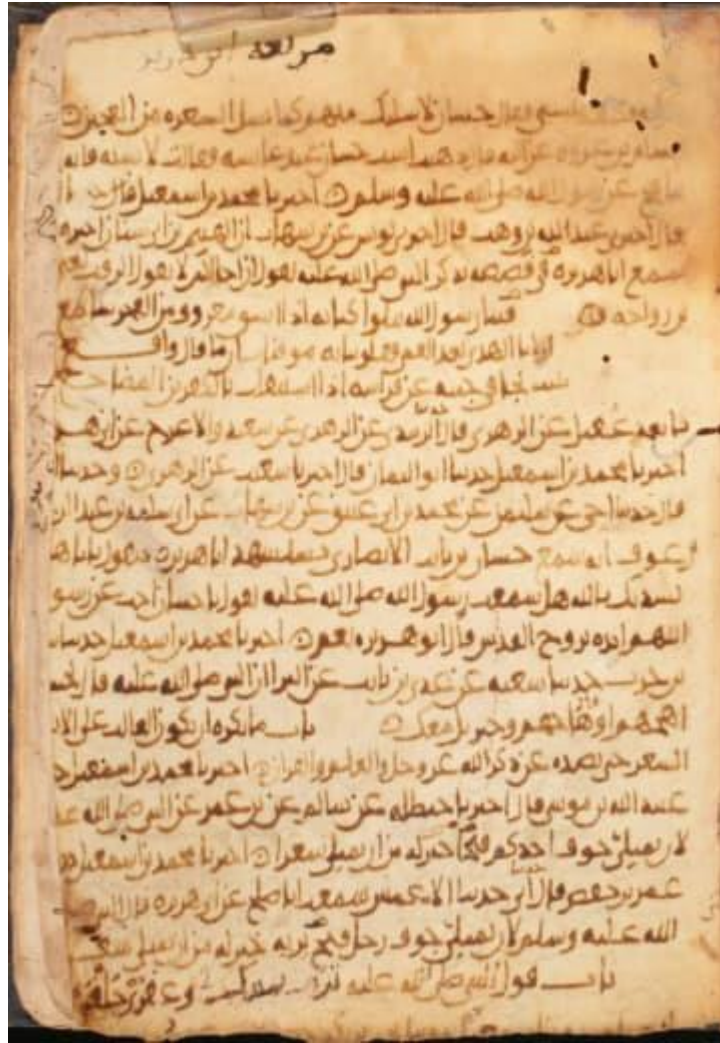 بنسبي فقال حسان لاسلنك منهم كما تسل الشعره من العجين
هشام بن عروه عن ابيه قال ذهبت اسب حسان عند عائشه فقالت لا تسبه فانه
عن رسول الله صلى الله عليه وسلم اخبرنا محمد بن اسمعيل قال
قال اخبرني عبد الله بن وهب قال اخبرني يونس عن ابن شهاب ان الهيثم بن ابي سنان اخبره
سمع ابا هريره في قصصه يذكر النبي صلى الله عليه يقول ان اخا لكم لا يقول الرفث
بن رواحه قال فينا رسول الله يتلوا كتابه اذا انشق معروف من الفجر ساطع
ارانا الهدى بعد العمى فقلوبنا به موقنات ان ما قال واقع
يبيت يجافي جنبه عن فراشه اذا استثقلت المضاجع
تابعه عقيل عن الزهري قال الزبيدي عن الزهري عن سعيد والاعرج عن ابي هر
اخبرنا محمد بن اسمعيل حدثنا ابو اليمان قال اخبرنا شعيب عن الزهري وحدثنا
قال حدثنا اخي عن سليمن عن محمد بن ابي عتيق عن ابن شهاب عن ابي سلمه بن عبد الر
بن عوف انه سمع حسان بن ثابت الانصاري يستشهد ابا هريره فيقول يابا ه
نشدتك بالله هل سمعت رسول الله صلى الله عليه يقول يا حسان اجب عن رسو
اللهم ايده بروح القدس قال ابو هريره نعم اخبرنا محمد بن اسمعيل حدثنا
بن حرب حدثنا شعبه عن عدي بن ثابت عن البرا ان النبي صلى الله عليه قال
اهجهم او قال هاجهم وجبريل معك باب ما يكره ان يكون الغالب على الا
الشعر حتى يصده عن ذكر الله عز وجل والعلم والقران اخبرنا محمد بن اسمعيل
عبيد الله بن موسى قال اخبرنا حنظله عن سالم عن ابن عمر عن النبي صلى الله
لان يمتلئ جوف احدكم قيحا خير له من ان يمتلئ شعرا اخبرنا محمد بن اسمعيل
عمر بن حفص قال ابي حدثنا الاعمش سمعت ابا صلح عن ابي هريره قال
الله عليه وسلم لان يمتلئ جوف رجل قيحا يريه خير له من ان يمتلئ
باب قول النبي صلى الله عليه تربت يمينك وعقرى حلقى